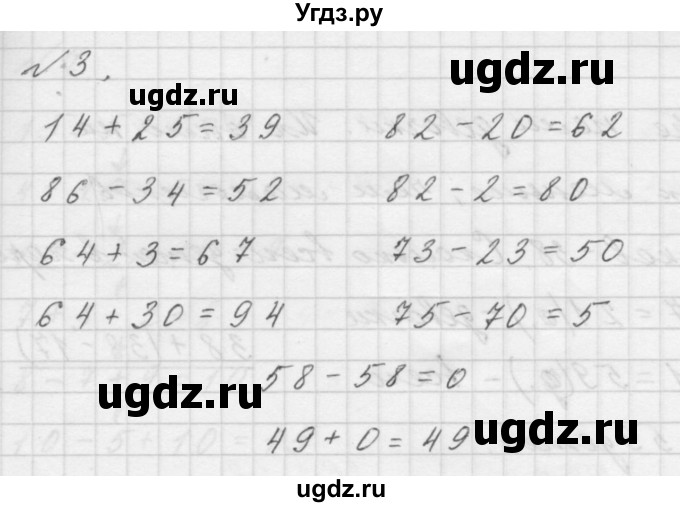 Угдз.ру
№3.
ugdz.ru
ugdz.ru
14+25=39 82-20=62
86-34=52 82-2=80
ugdz.ru
ugdz.ru
64+3=67 73-23=50
64+30=94 75-70=5
58-58=0
ugdz.ru
49+0=49
ugdz.ru
ugdz.ru